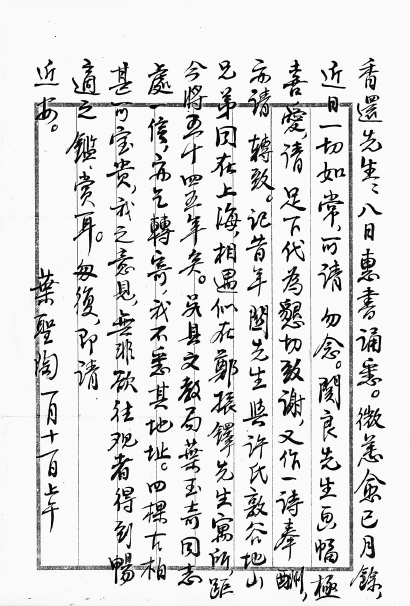 香還先生：八日惠书诵悉。微恙愈已月餘，
近日一切如常，可请勿念。關良先生画幅極
喜爱，请足下代為懇切致谢，又作一诗奉酬，
亦请轉致。记昔年關先生與许氏敦谷地山
兄弟同在上海，相遇似在鄭振鐸先生寓所，距
今將五十四五年矣。吴县文教局葉玉奇同志
處一信，亦乞轉寄，我不悉其地址。四棵古柏
甚可宝贵，我之意見，無非欲往观者得到暢
適之鑑赏耳。匆復，即请
近安。
葉聖陶 一月十一日上午